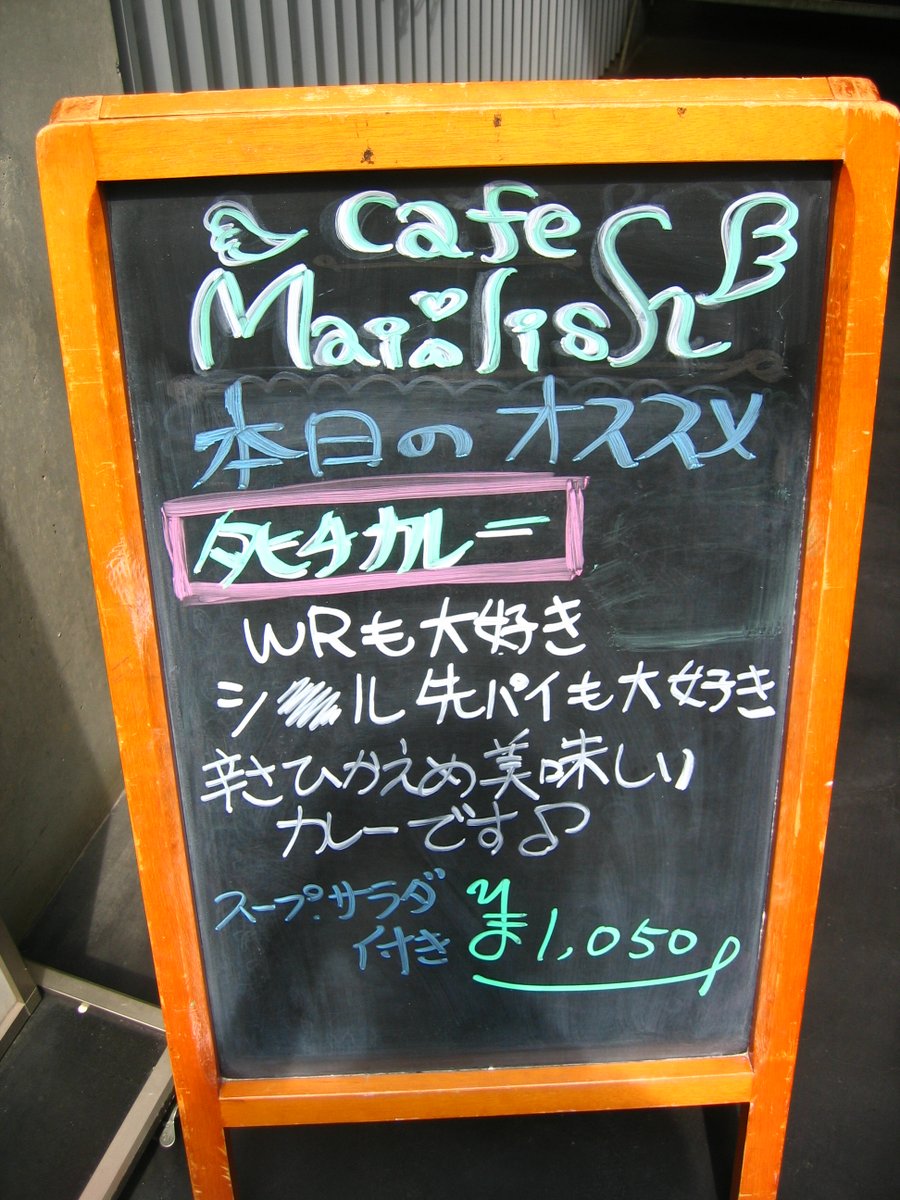 cafe
Mai:lish
本日のオススメ
タヒチカレー
WRも大好き
シ ル先パイも大好き
辛さひかえめ美味しい
カレーです♪
スープ・サラダ
付き
¥1,050